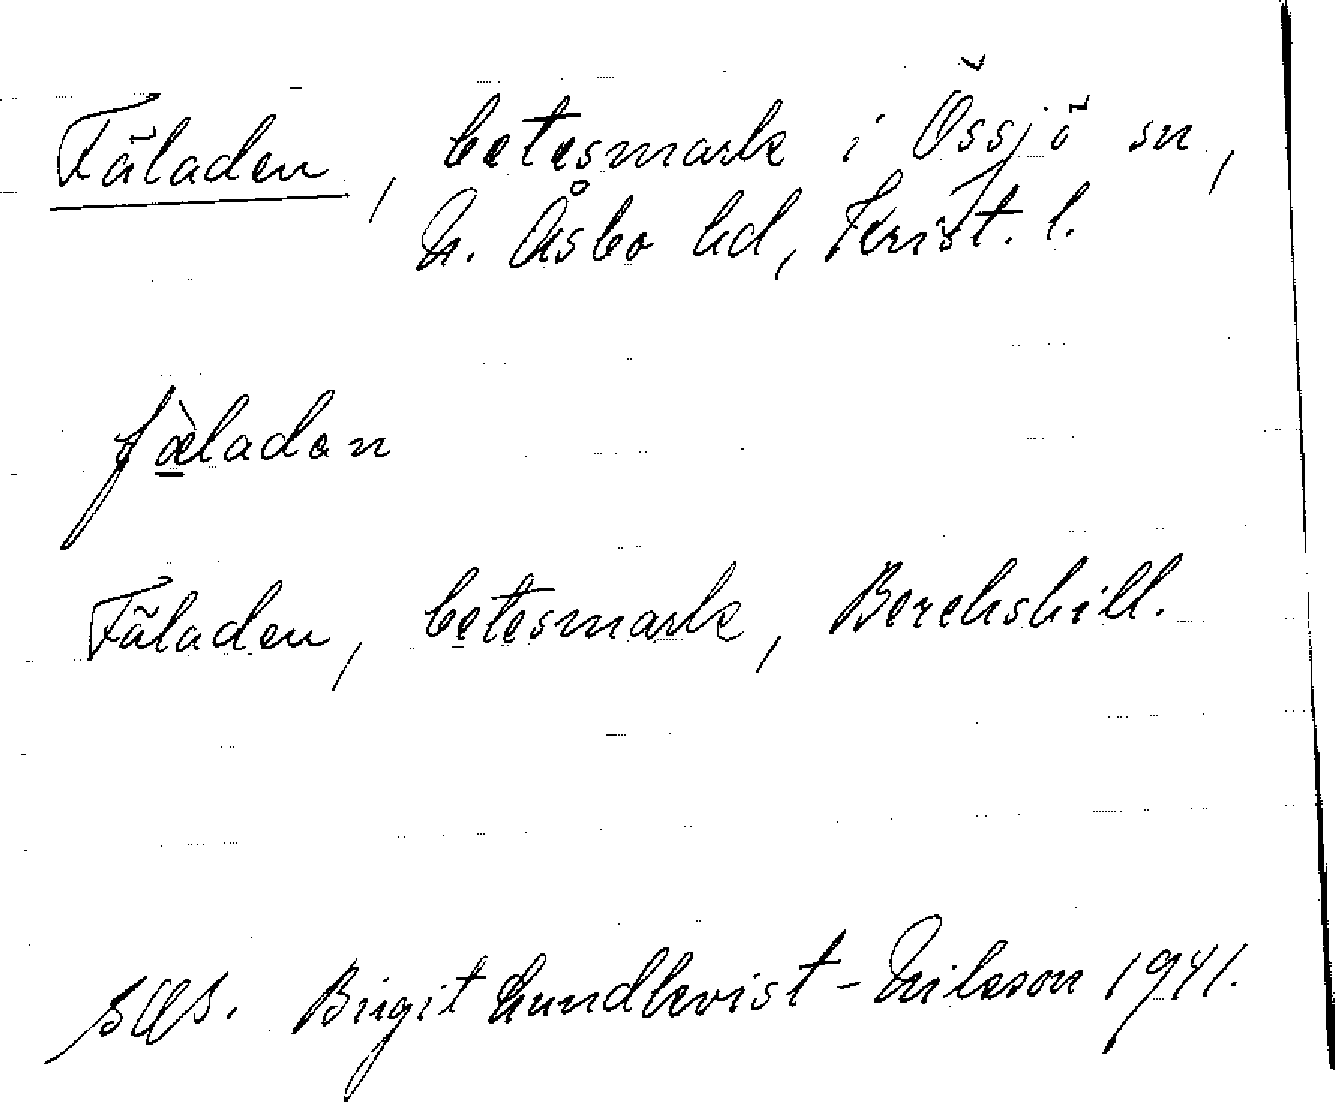 Fäladen, betesmark i Össjö sn,
N. Åsbo hd, Krist. l.
fæ̀ladan
Fäladen, betesmark, Berehskill.
Birgit Lundkvist-Nilsson 1941.